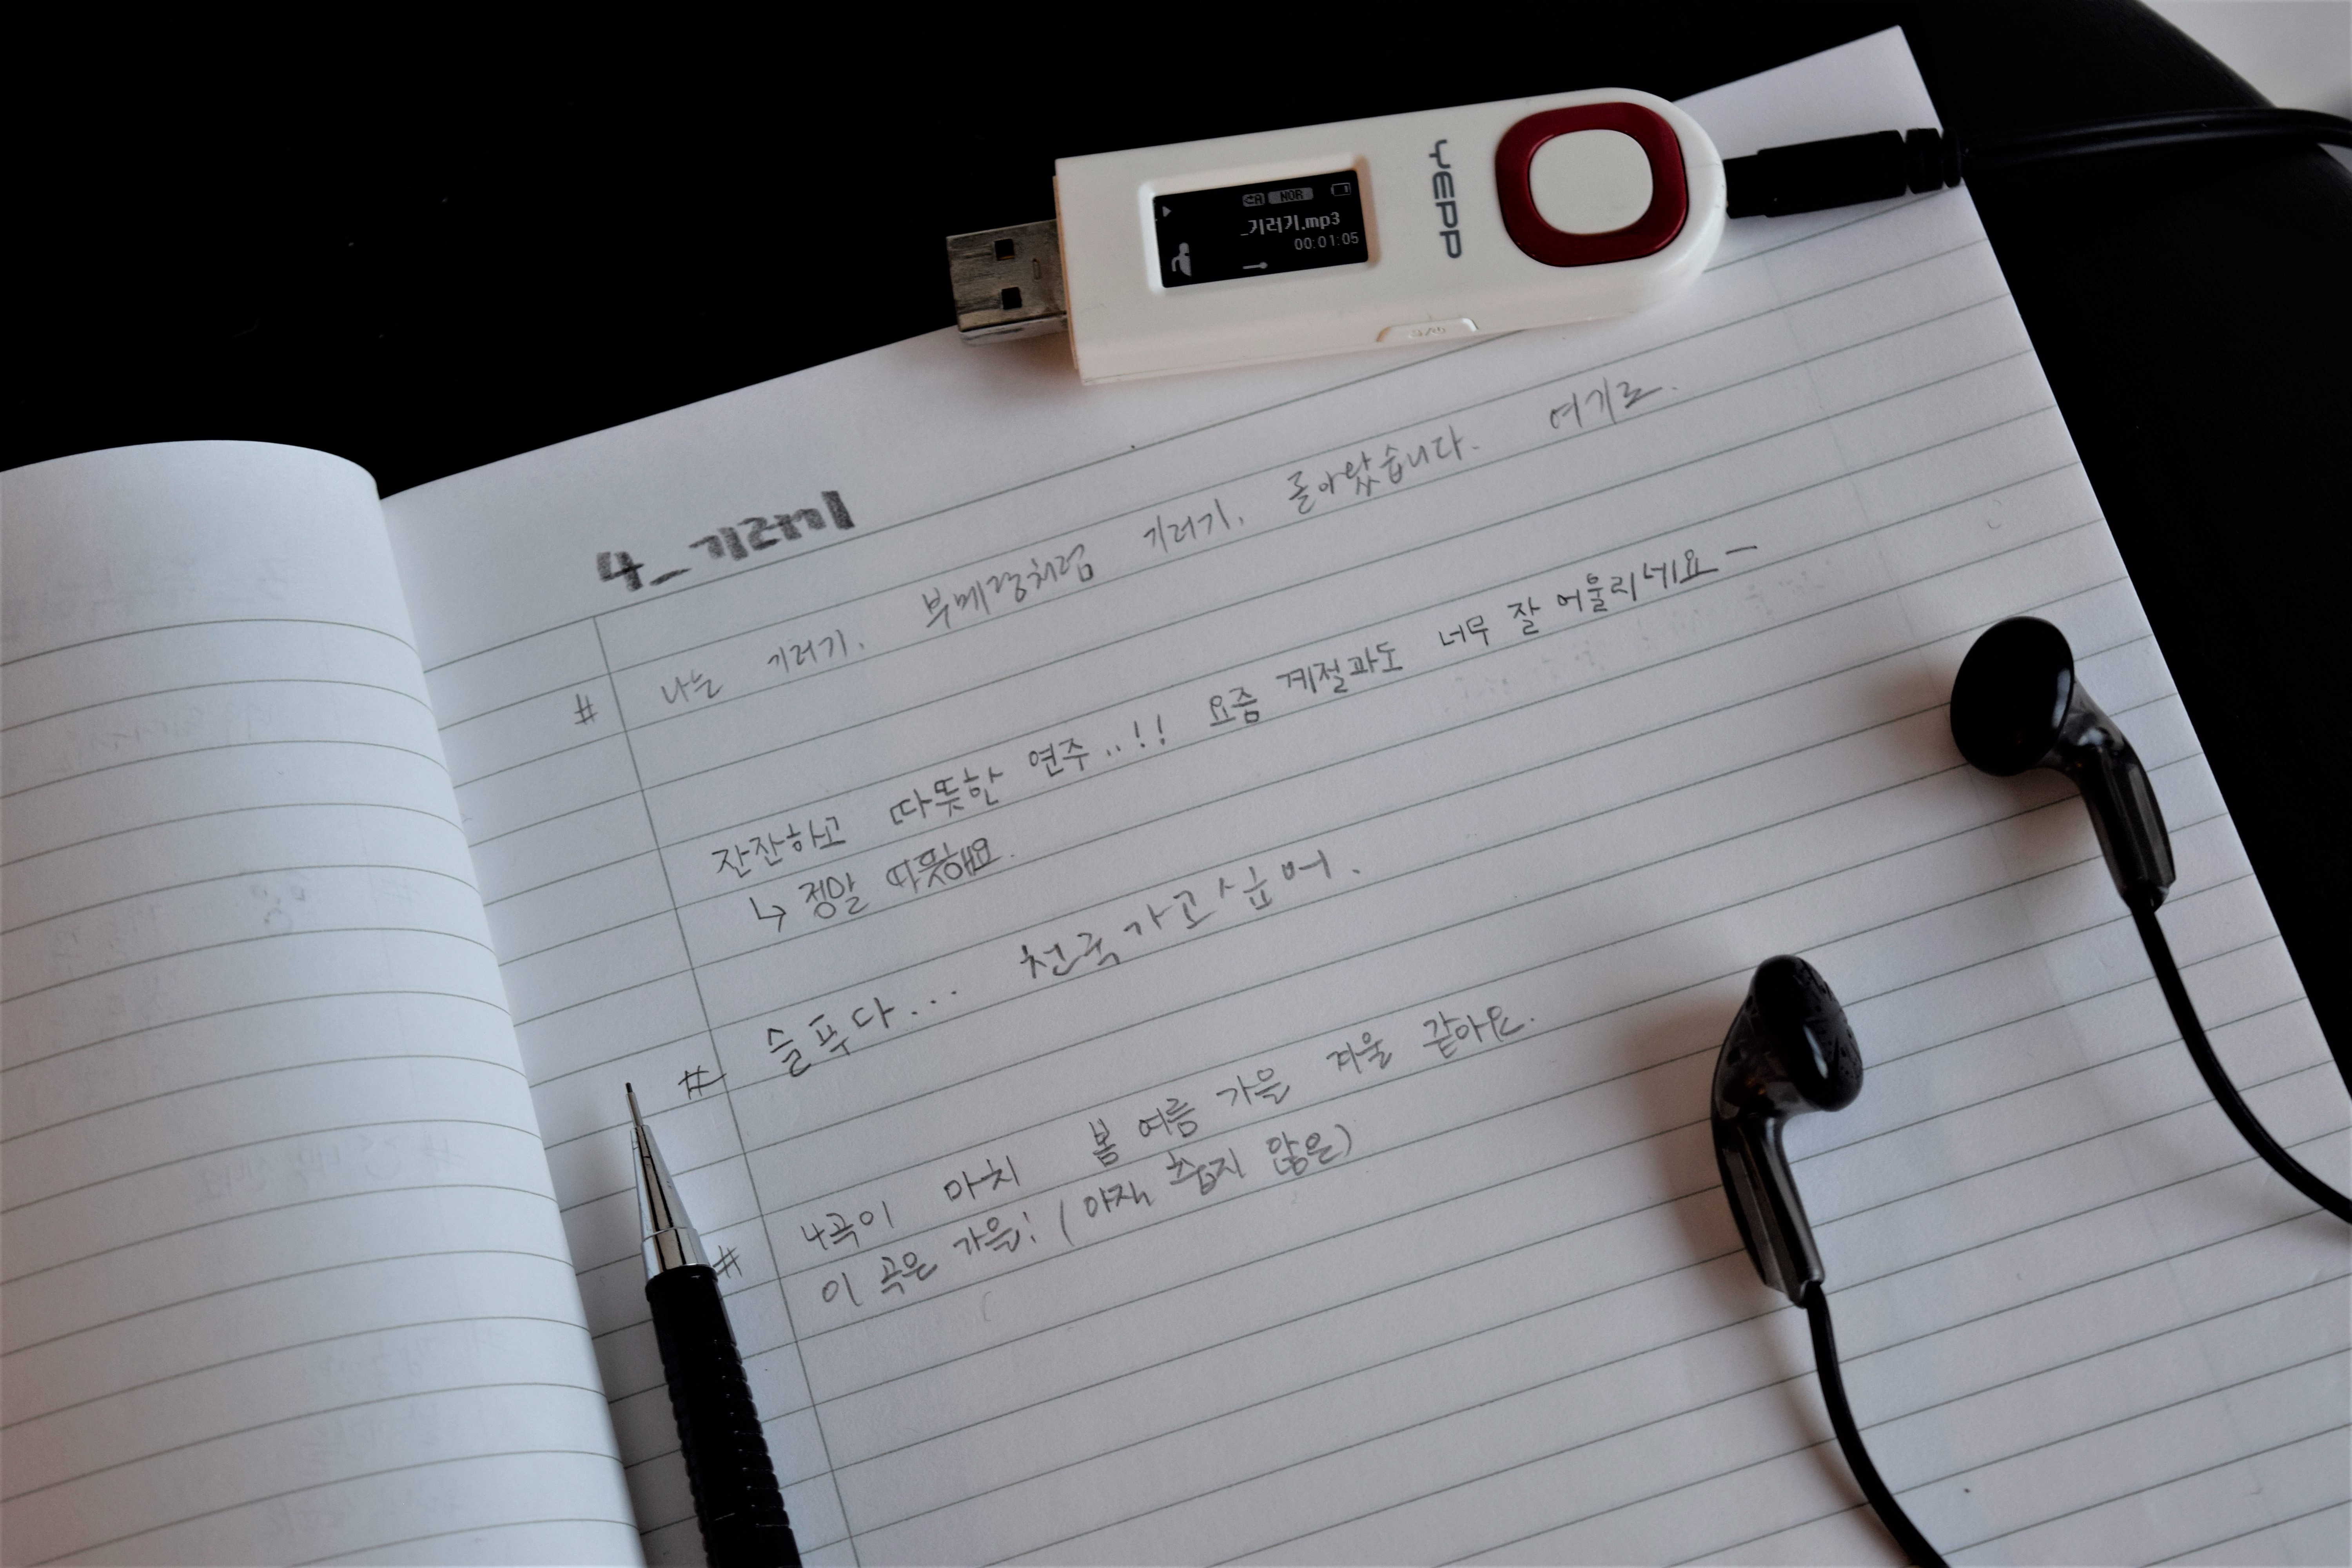 YEPP
NOR
_기러기.mp3
00:01:05
4_기러기
# 나는 기러기. 부메랑처럼 기러기. 돌아왔습니다. 여기로.
잔잔하고 따뜻한 연주..!! 요즘 계절과도 너무 잘 어울리네요ㅡ
↳ 정말 따뜻해요.
# 슬푸다... 천국가고싶어.
# 4곡이 마치 봄 여름 가을 겨울 같아요.
이 곡은 가을! (아직 춥지 않은)